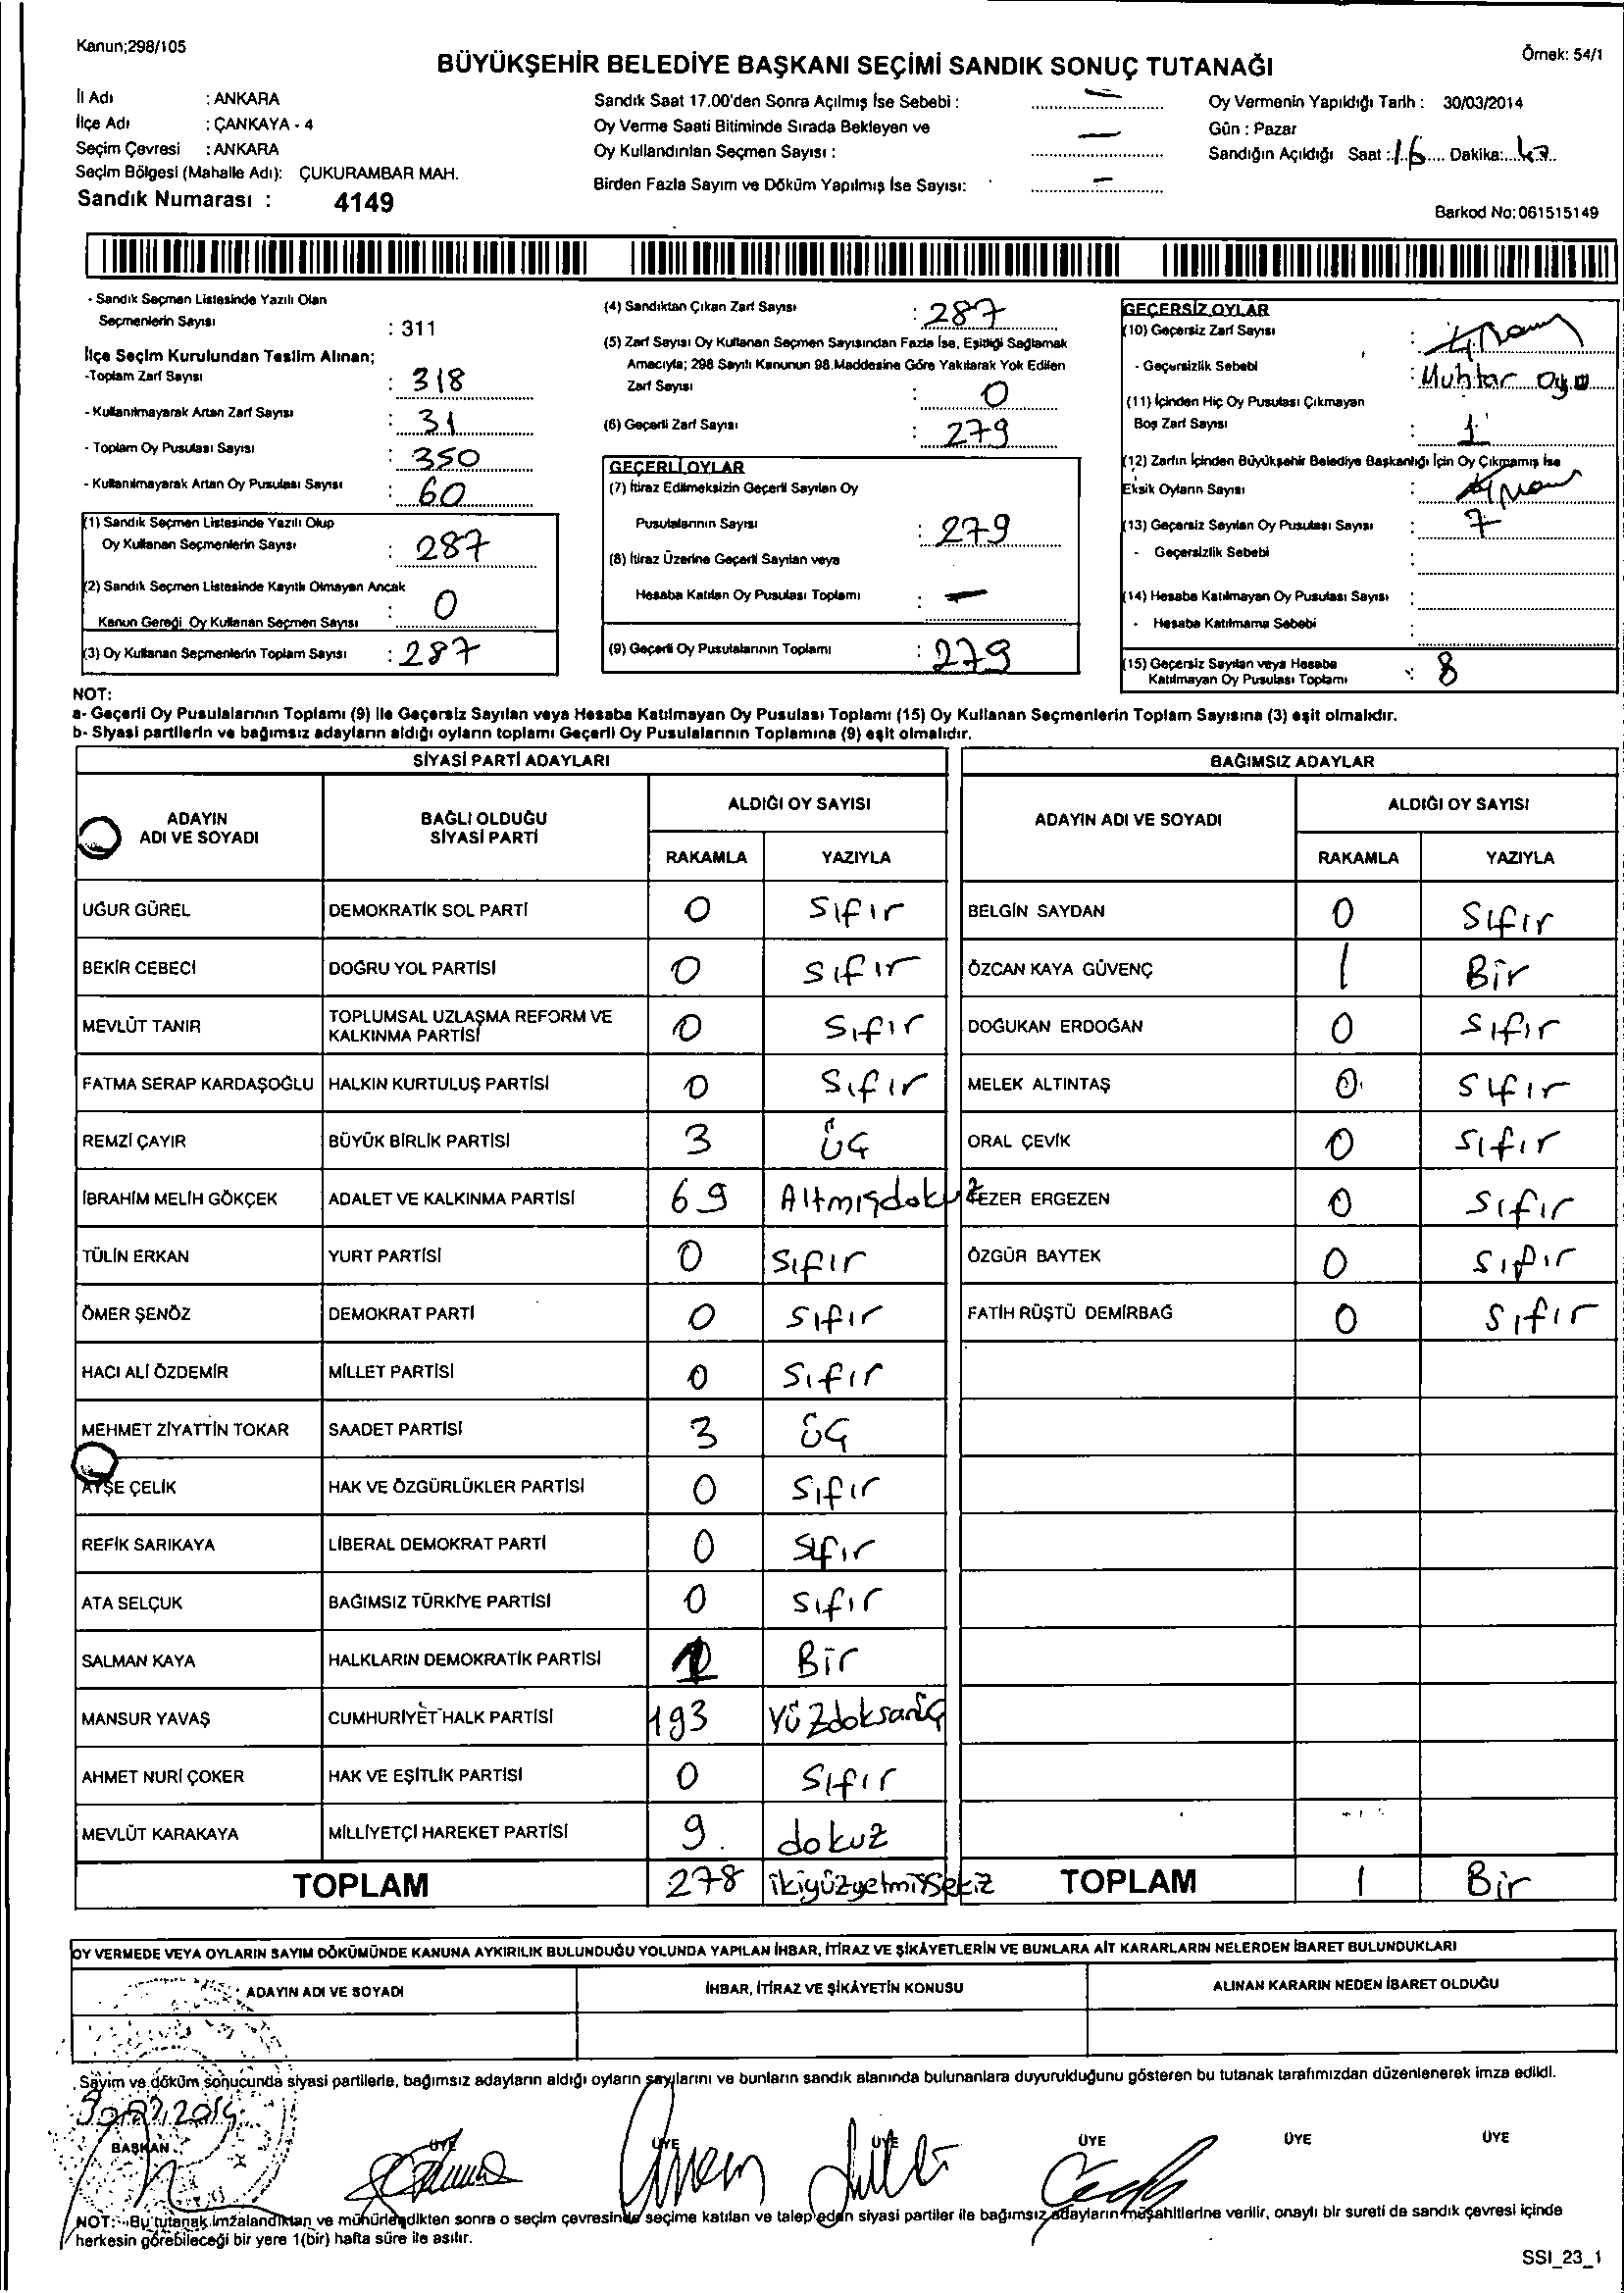 Kanun;298/105
Örnek: 54/1
BÜYÜKŞEHİR BELEDİYE BAŞKANI SEÇİMİ SANDIK SONUÇ TUTANAĞI
İl Adı : ANKARA
İlçe Adı : ÇANKAYA - 4
Seçim Çevresi : ANKARA
Seçim Bölgesi (Mahalle Adı): ÇUKURAMBAR MAH.
Sandık Numarası : 4149
Sandık Saat 17.00'den Sonra Açılmış İse Sebebi : —
Oy Verme Saati Bitiminde Sırada Bekleyen ve
Oy Kullandırılan Seçmen Sayısı : —
Birden Fazla Sayım ve Döküm Yapılmış İse Sayısı: —
Oy Vermenin Yapıldığı Tarih : 30/03/2014
Gün : Pazar
Sandığın Açıldığı Saat : 16 Dakika: 47
Barkod No: 061515149
- Sandık Seçmen Listesinde Yazılı Olan
Seçmenlerin Sayısı : 311
İlçe Seçim Kurulundan Teslim Alınan;
-Toplam Zarf Sayısı : 318
- Kullanılmayarak Artan Zarf Sayısı : 31
- Toplam Oy Pusulası Sayısı : 350
- Kullanılmayarak Artan Oy Pusulası Sayısı : 60
(1) Sandık Seçmen Listesinde Yazılı Olup
Oy Kullanan Seçmenlerin Sayısı : 287
(2) Sandık Seçmen Listesinde Kayıtlı Olmayan Ancak
Kanun Gereği Oy Kullanan Seçmen Sayısı : 0
(3) Oy Kullanan Seçmenlerin Toplam Sayısı : 287
(4) Sandıktan Çıkan Zarf Sayısı : 287
(5) Zarf Sayısı Oy Kullanan Seçmen Sayısından Fazla İse, Eşitliği Sağlamak
Amacıyla; 298 Sayılı Kanunun 98.Maddesine Göre Yakılarak Yok Edilen
Zarf Sayısı : 0
(6) Geçerli Zarf Sayısı : 279
GEÇERLİ OYLAR
(7) İtiraz Edilmeksizin Geçerli Sayılan Oy
Pusulalarının Sayısı : 279
(8) İtiraz Üzerine Geçerli Sayılan veya
Hesaba Katılan Oy Pusulası Toplamı : —
(9) Geçerli Oy Pusulalarının Toplamı : 279
GEÇERSİZ OYLAR
(10) Geçersiz Zarf Sayısı :
- Geçersizlik Sebebi : Muhtar oyu
(11) İçinden Hiç Oy Pusulası Çıkmayan
Boş Zarf Sayısı : 1
(12) Zarfın İçinden Büyükşehir Belediye Başkanlığı İçin Oy Çıkmamış İse
Eksik Oyların Sayısı :
(13) Geçersiz Sayılan Oy Pusulası Sayısı : 7
- Geçersizlik Sebebi
(14) Hesaba Katılmayan Oy Pusulası Sayısı :
- Hesaba Katılmama Sebebi :
(15) Geçersiz Sayılan veya Hesaba
Katılmayan Oy Pusulası Toplamı : 8
NOT:
a- Geçerli Oy Pusulalarının Toplamı (9) ile Geçersiz Sayılan veya Hesaba Katılmayan Oy Pusulası Toplamı (15) Oy Kullanan Seçmenlerin Toplam Sayısına (3) eşit olmalıdır.
b- Siyasi partilerin ve bağımsız adayların aldığı oyların toplamı Geçerli Oy Pusulalarının Toplamına (9) eşit olmalıdır.
SİYASİ PARTİ ADAYLARI
ADAYIN ADI VE SOYADI BAĞLI OLDUĞU SİYASİ PARTİ ALDIĞI OY SAYISI
RAKAMLA YAZIYLA
UĞUR GÜREL DEMOKRATİK SOL PARTİ 0 Sıfır
BEKİR CEBECİ DOĞRU YOL PARTİSİ 0 Sıfır
MEVLÜT TANIR TOPLUMSAL UZLAŞMA REFORM VE KALKINMA PARTİSİ 0 Sıfır
FATMA SERAP KARDAŞOĞLU HALKIN KURTULUŞ PARTİSİ 0 Sıfır
REMZİ ÇAYIR BÜYÜK BİRLİK PARTİSİ 3 ÜÇ
İBRAHİM MELİH GÖKÇEK ADALET VE KALKINMA PARTİSİ 69 Altmışdokuz
TÜLİN ERKAN YURT PARTİSİ 0 Sıfır
ÖMER ŞENÖZ DEMOKRAT PARTİ 0 Sıfır
HACI ALİ ÖZDEMİR MİLLET PARTİSİ 0 Sıfır
MEHMET ZİYATTİN TOKAR SAADET PARTİSİ 3 ÜÇ
AYŞE ÇELİK HAK VE ÖZGÜRLÜKLER PARTİSİ 0 Sıfır
REFİK SARIKAYA LİBERAL DEMOKRAT PARTİ 0 Sıfır
ATA SELÇUK BAĞIMSIZ TÜRKİYE PARTİSİ 0 Sıfır
SALMAN KAYA HALKLARIN DEMOKRATİK PARTİSİ 1 Bir
MANSUR YAVAŞ CUMHURİYET HALK PARTİSİ 193 Yüzdoksanüç
AHMET NURİ ÇOKER HAK VE EŞİTLİK PARTİSİ 0 Sıfır
MEVLÜT KARAKAYA MİLLİYETÇİ HAREKET PARTİSİ 9 dokuz
TOPLAM 278 ikiyüzyetmişsekiz
BAĞIMSIZ ADAYLAR
ADAYIN ADI VE SOYADI ALDIĞI OY SAYISI
RAKAMLA YAZIYLA
BELGİN SAYDAN 0 Sıfır
ÖZCAN KAYA GÜVENÇ 1 Bir
DOĞUKAN ERDOĞAN 0 Sıfır
MELEK ALTINTAŞ 0 Sıfır
ORAL ÇEVİK 0 Sıfır
EZER ERGEZEN 0 Sıfır
ÖZGÜR BAYTEK 0 Sıfır
FATİH RÜŞTÜ DEMİRBAĞ 0 Sıfır
TOPLAM 1 Bir
OY VERMEDE VEYA OYLARIN SAYIM DÖKÜMÜNDE KANUNA AYKIRILIK BULUNDUĞU YOLUNDA YAPILAN İHBAR, İTİRAZ VE ŞİKÂYETLERİN VE BUNLARA AİT KARARLARIN NELERDEN İBARET BULUNDUKLARI
ADAYIN ADI VE SOYADI İHBAR, İTİRAZ VE ŞİKÂYETİN KONUSU ALINAN KARARIN NEDEN İBARET OLDUĞU
Sayım ve döküm sonucunda siyasi partilerle, bağımsız adayların aldığı oyların sayılarını ve bunların sandık alanında bulunanlara duyurulduğunu gösteren bu tutanak tarafımızdan düzenlenerek imza edildi.
30.03.2014
BAŞKAN ÜYE ÜYE ÜYE ÜYE ÜYE ÜYE
NOT: Bu tutanak imzalandıktan ve mühürlendikten sonra o seçim çevresinde seçime katılan ve talep eden siyasi partiler ile bağımsız adayların müşahitlerine verilir, onaylı bir sureti de sandık çevresi içinde
herkesin görebileceği bir yere 1(bir) hafta süre ile asılır.
SSI_23_1